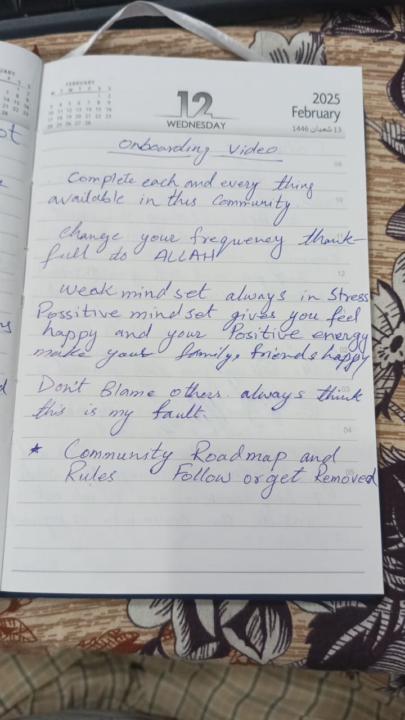 FEBRUARY
12
WEDNESDAY
2025
February
13 شعبان 1446
Onboarding Video
Complete each and every thing
available in this community
change your frequency thank-
full do ALLAH
weak mind set always in stress
Possitive mind set gives you feel
happy and your Positive energy
make your family, friends happy
Don't Blame others always think
this is my fault.
* Community Roadmap and
Rules Follow or get Removed